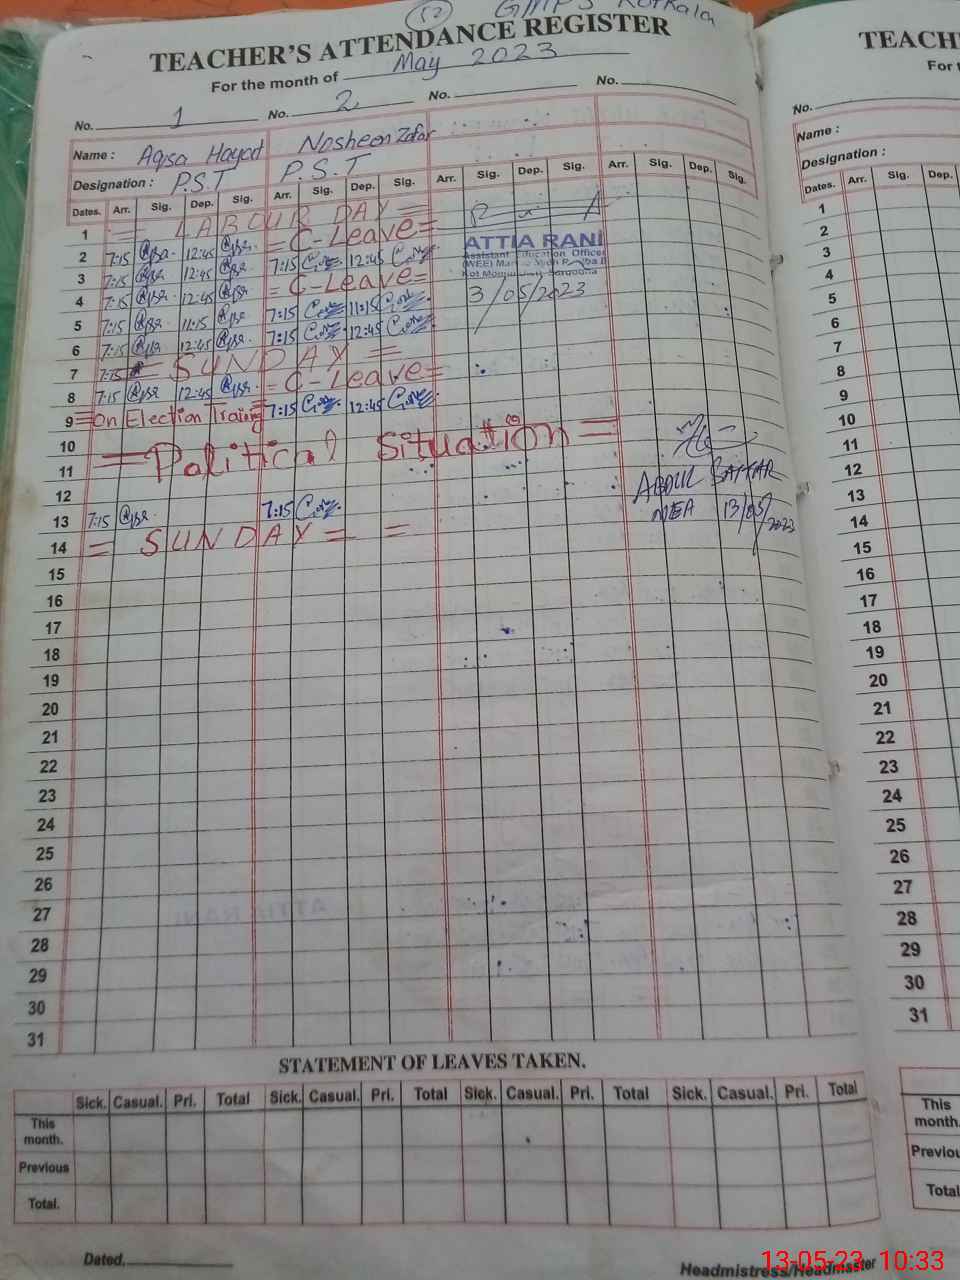 (52) GMPS Kotkala
TEACHER'S ATTENDANCE REGISTER
For the month of May 2023
No. 1 No. 2 No. No.
Name : Aqsa Hayat Nosheen Zafar
Designation : P.S.T P.S.T
Dates. Arr. Sig. Dep. Sig. Arr. Sig. Dep. Sig. Arr. Sig. Dep. Sig. Arr. Sig. Dep. Sig.
1 = LABOUR DAY =
2 7:15 12:45 = C-Leave =
3 7:15 12:45 7:15 12:45
4 7:15 12:45 = C-Leave =
5 7:15 11:15 7:15 11:15
6 7:15 12:45 7:15 12:45
7 7:15 = SUNDAY =
8 7:15 12:45 = C-Leave =
9 = On Election Training = 7:15 12:45
10
11 = Political Situation =
12
13 7:15 7:15
14 = SUNDAY = =
15
16
17
18
19
20
21
22
23
24
25
26
27
28
29
30
31
ATTIA RANI
Assistant Education Officer
3/05/2023
ABDUL SATTAR
MEA 13/05/2023
STATEMENT OF LEAVES TAKEN.
Sick. Casual. Pri. Total Sick. Casual. Pri. Total Sick. Casual. Pri. Total Sick. Casual. Pri. Total
This month.
Previous
Total.
Dated.
Headmistress/Headmaster
TEACH
For t
No.
Name :
Designation :
Dates. Arr. Sig. Dep.
1
2
3
4
5
6
7
8
9
10
11
12
13
14
15
16
17
18
19
20
21
22
23
24
25
26
27
28
29
30
31
This month.
Previou
Total
13-05-23 10:33